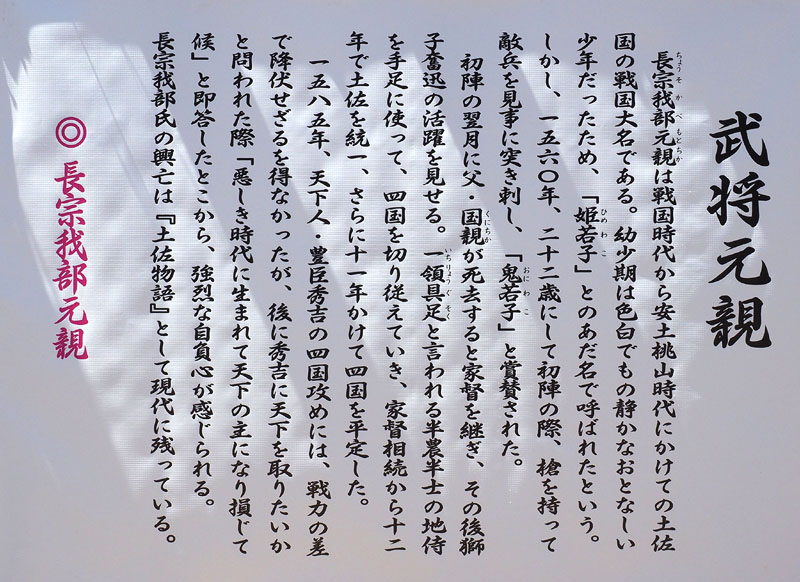 武将元親
長宗我部元親は戦国時代から安土桃山時代にかけての土佐
国の戦国大名である。幼少期は色白でもの静かなおとなしい
少年だったため、「姫若子」とのあだ名で呼ばれたという。
しかし、一五六〇年、二十二歳にして初陣の際、槍を持って
敵兵を見事に突き刺し、「鬼若子」と賞賛された。
初陣の翌月に父・国親が死去すると家督を継ぎ、その後獅
子奮迅の活躍を見せる。一領具足と言われる半農半士の地侍
を手足に使って、四国を切り従えていき、家督相続から十二
年で土佐を統一、さらに十一年かけて四国を平定した。
一五八五年、天下人・豊臣秀吉の四国攻めには、戦力の差
で降伏せざるを得なかったが、後に秀吉に天下を取りたいか
と問われた際「悪しき時代に生まれて天下の主になり損じて
候」と即答したとこから、強烈な自負心が感じられる。
長宗我部氏の興亡は『土佐物語』として現代に残っている。
◎ 長宗我部元親